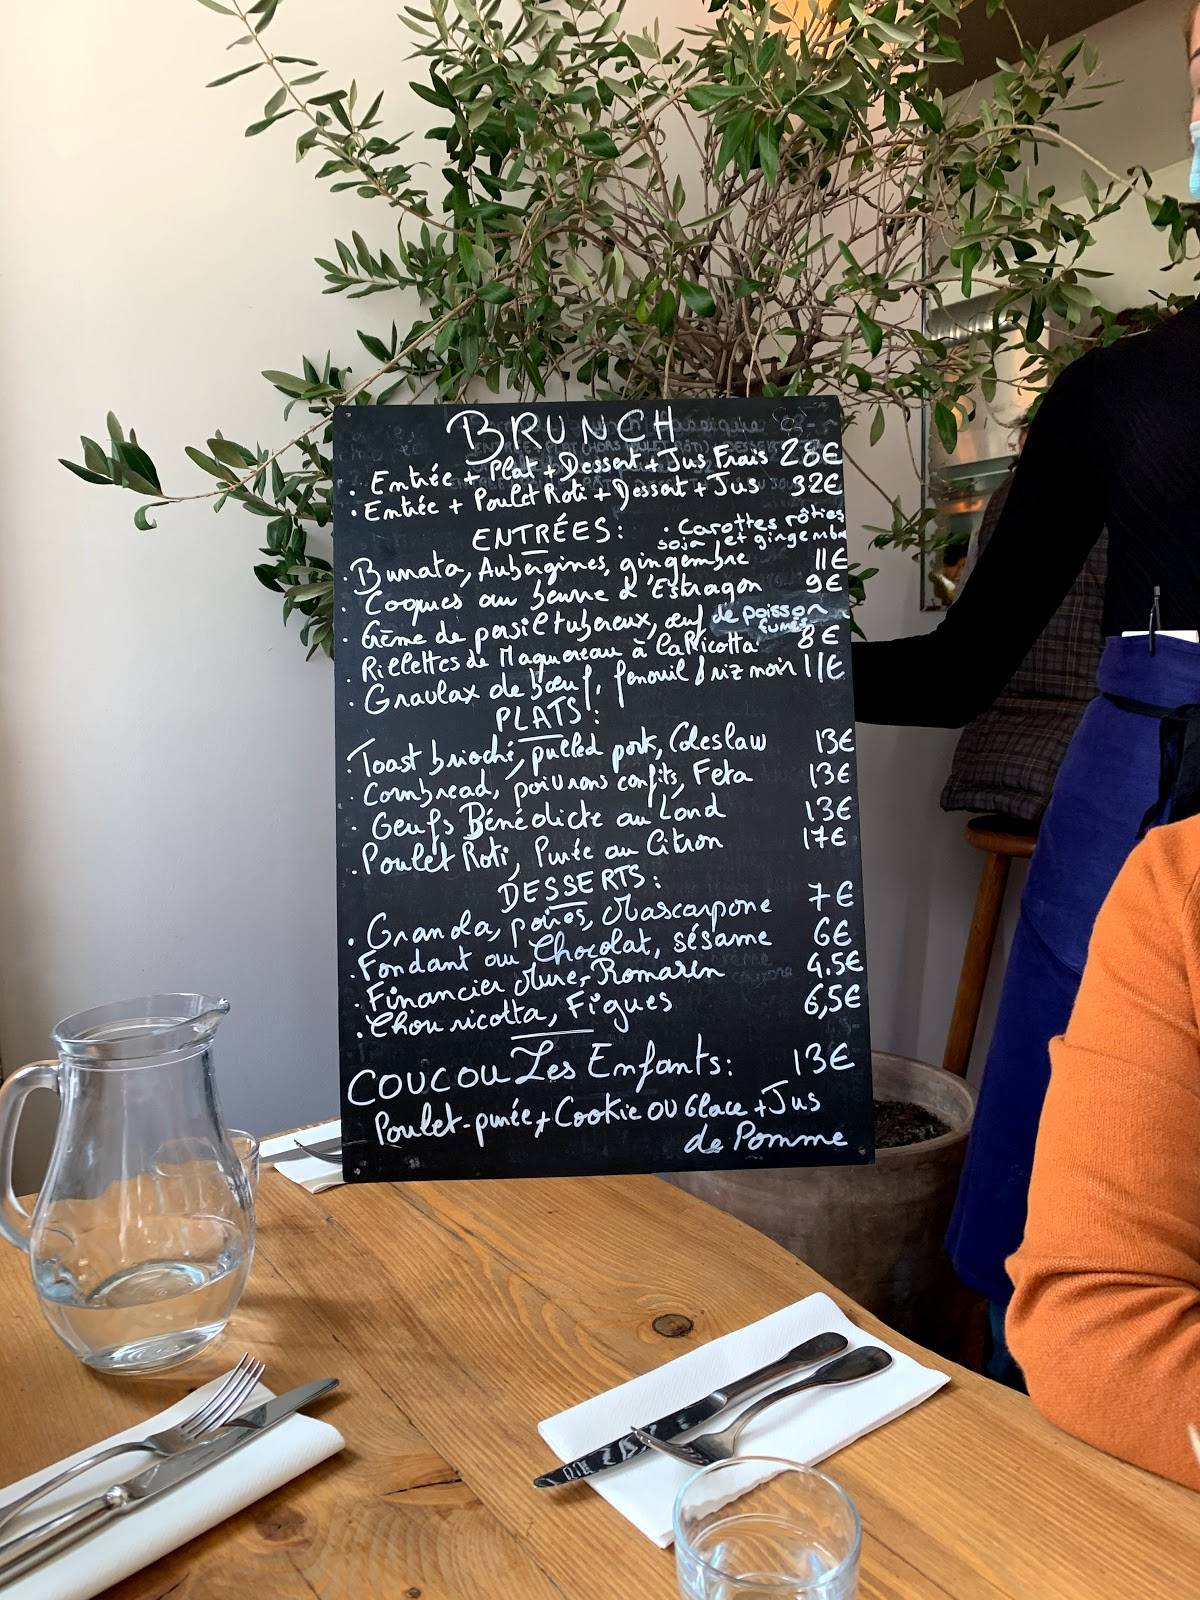 BRUNCH
. Entrée + Plat + Dessert + Jus Frais 28€
. Entrée + Poulet Roti + Dessert + Jus 32€
ENTRÉES: . Carottes rôties
soja et gingembre
. Burrata, Aubergines, gingembre 11€
. Coques au beurre d'Estragon 9€
. Crème de persil tubéreux, œuf de poisson
fumés
. Rillettes de Maquereau à la Ricotta 8€
. Gravlax de bœuf, fenouil & riz noir 11€
PLATS:
. Toast brioché, pulled pork, Coleslaw 13€
. Cornbread, poivrons confits, Feta 13€
. Oeufs Bénédicte au Lard 13€
. Poulet Roti, Purée au Citron 17€
DESSERTS:
. Granola, poires, Mascarpone 7€
. Fondant au Chocolat, sésame 6€
. Financier Mure, Romarin 4.5€
. Chou ricotta, Figues 6,5€
COUCOU Les Enfants: 13€
Poulet-purée + Cookie OU Glace + Jus
de Pomme